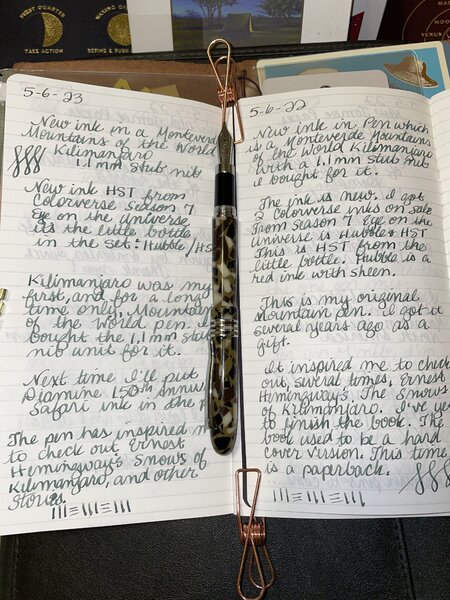 FIRST QUARTER
TAKE ACTION
WAXING GIBBOUS
REFINE & PUSH
5-6-23
New ink in a Monteverde
Mountains of the World
Kilimanjaro
1.1mm stub nib
New ink HST from
Colorverse Season 7
Eye on the Universe
its the little bottle
in the set: Hubble/HST
Kilimanjaro was my
first, and for a long
time only, Mountain
of the World pen. I
bought the 1.1mm stub
nib unit for it.
Next time I'll put
Diamine 150th Anniv
Safari ink in the
The pen has inspired me
to check out Ernest
Hemingway's Snows of
Kilimanjaro, and other
stories.
5-6-22
New ink in Pen which
is a Monteverde Mountains
of the World Kilimanjaro
with a 1.1mm stub nib
I bought for it.
The ink is new. I got
2 Colorverse inks on sale
from Season 7 Eye on the
Universe is Hubble + HST
This is HST from the
little bottle. Hubble is a
red ink with sheen.
This is my original
mountain pen. I got it
several years ago as a
gift.
It inspired me to check
out, several times, Ernest
Hemingway's The Snows
of Kilimanjaro. I've yet
to finish the book. The
book used to be a hard
cover version. This time
is a paperback.